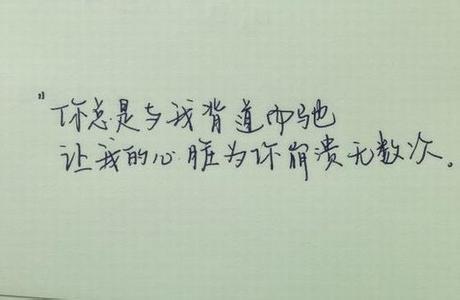 "你总是与我背道而驰
让我的心脏为你崩溃无数次。